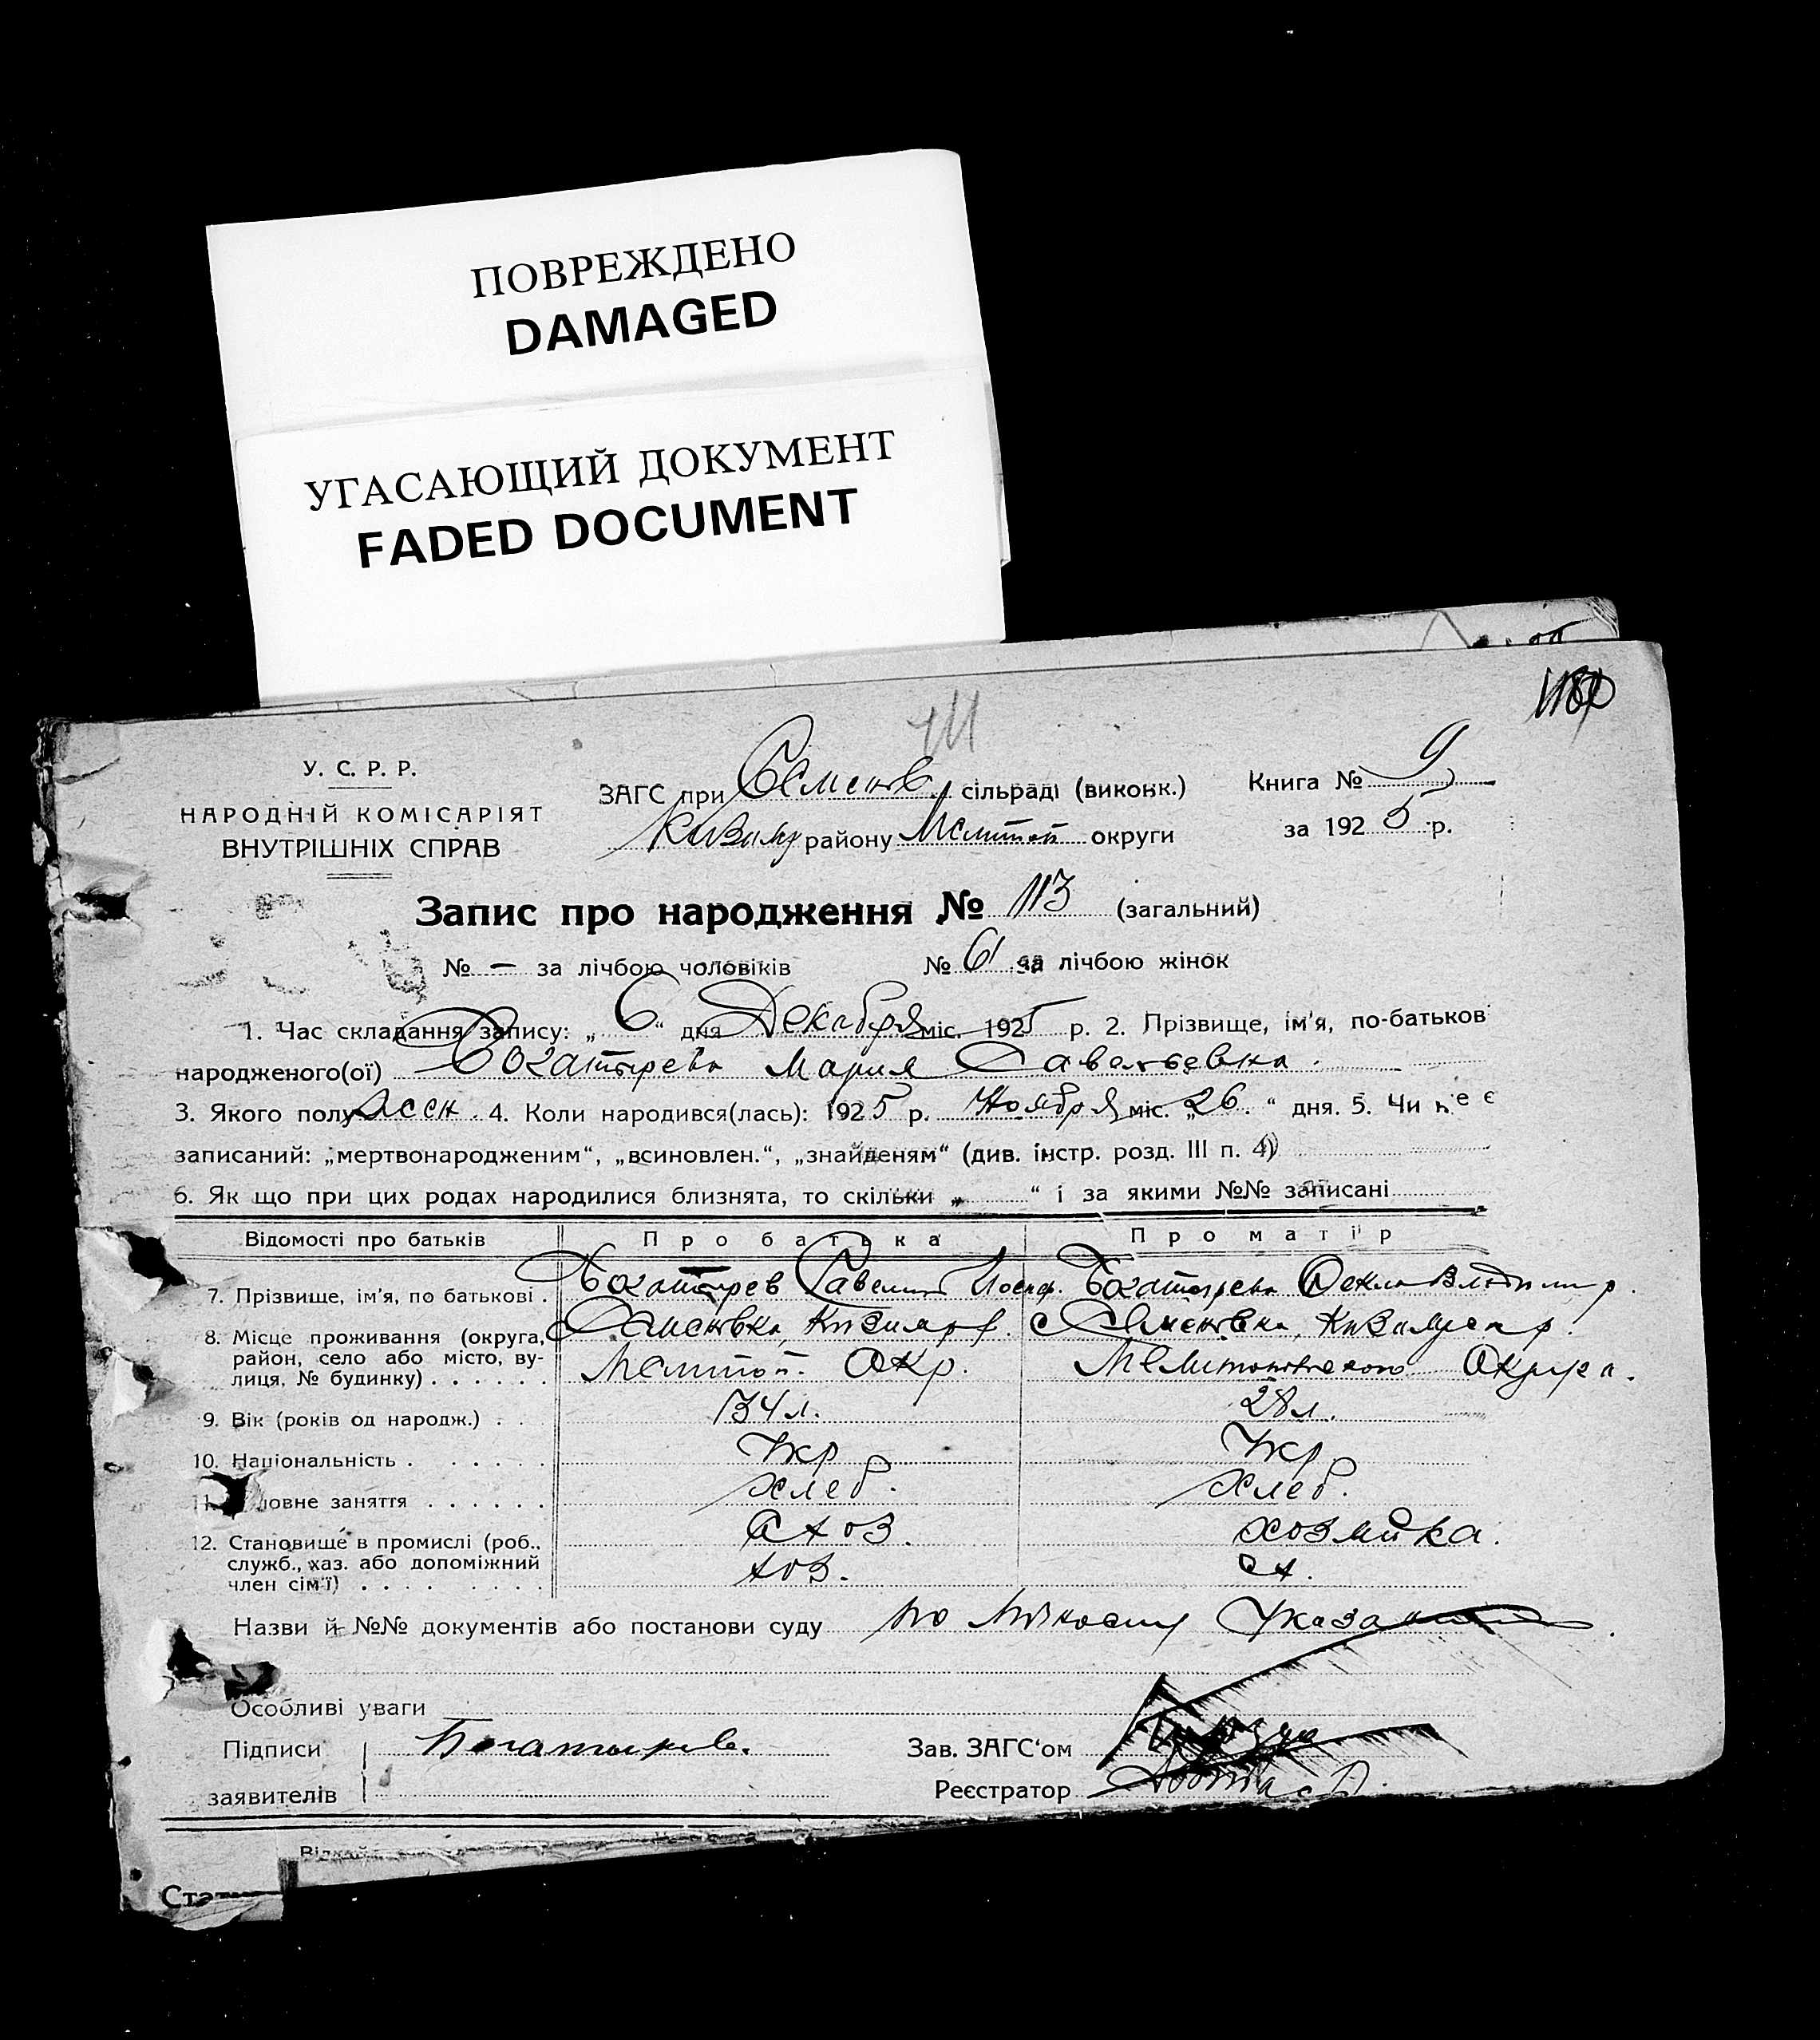 ПОВРЕЖДЕНО
DAMAGED
УГАСАЮЩИЙ ДОКУМЕНТ
FADED DOCUMENT
У. С. Р. Р.
НАРОДНІЙ КОМІСАРІЯТ
ВНУТРІШНІХ СПРАВ
ЗАГС при Семенов. сільраді (виконк.)
району Мелитоп округи
Книга № 9
за 1925 р.
Запис про народження № 113 (загальний)
№ — за лічбою чоловіків № 61 за лічбою жінок
1. Час складання запису: „6“ дня Декабря міс. 1925 р. 2. Прізвище, ім'я, по-батьков
народженого(ої) Богатырева Мария Савельевна
3. Якого полу жен. 4. Коли народився(лась): 1925 р. Ноября міс. „26.“ дня. 5. Чи не є
записаний: „мертвонародженим“, „всиновлен.“, „знайденям“ (див. інстр. розд. III п. 4)
6. Як що при цих родах народилися близнята, то скільки „ “ і за якими №№ записані
Відомості про батьків Про батька Про матір
7. Прізвище, ім'я, по батькові . Богатырев Савелий Иосиф. Богатырева Фекла Владимир.
8. Місце проживання (округа, район, село або місто, вулиця, № будинку) . . . . . . с Семеновка, с Семеновка,
Мелитоп. Окр. Мелитопольского Округа.
9. Вік (років од народж.) . . 34 л. 28 л.
10. Національність . . . . . . Укр Укр
11. ловне заняття . . . . . . хлеб. хлеб.
12. Становище в промислі (роб., служб., хаз. або допоміжний член сім'ї) . . . . . . схоз. хозяйка.
хоз. сх.
Назви й №№ документів або постанови суду по
Особливі уваги
Підписи Богатырев.
заявителів
Зав. ЗАГС'ом
Реєстратор